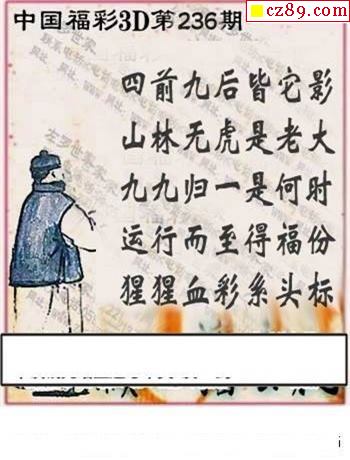 cz89.com
中国福彩3D第236期
四前九后皆它影
山林无虎是老大
九九归一是何时
运行而至得福份
猩猩血彩系头标
i